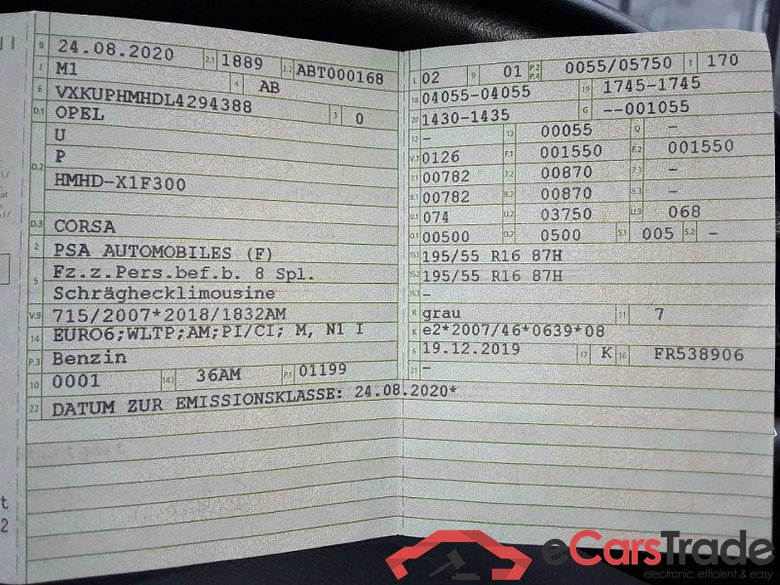 B 24.08.2020 2.1 1889 2.2 ABT000168
J M1 4 AB
E VXKUPHMHDL4294388
D.1 OPEL 3 0
U
P
D.2 HMHD-X1F300
D.3 CORSA
2 PSA AUTOMOBILES (F)
5 Fz.z.Pers.bef.b. 8 Spl.
Schräghecklimousine
V.9 715/2007*2018/1832AM
14 EURO6;WLTP;AM;PI/CI; M, N1 I
P.3 Benzin
10 0001 14.1 36AM P.1 01199
22 DATUM ZUR EMISSIONSKLASSE: 24.08.2020*
L 02 9 01 P.2 P.4 0055/05750 T 170
18 04055-04055 19 1745-1745
20 1430-1435 G --001055
12 - 13 00055 Q -
V.7 0126 F.1 001550 F.2 001550
7.1 00782 7.2 00870 7.3 -
8.1 00782 8.2 00870 8.3 -
U.1 074 U.2 03750 U.3 068
O.1 00500 O.2 0500 S.1 005 S.2 -
15.1 195/55 R16 87H
15.2 195/55 R16 87H
15.3 -
R grau 11 7
K e2*2007/46*0639*08
6 19.12.2019 17 K 16 FR538906
21 -
eCarsTrade
electronic, efficient & easy